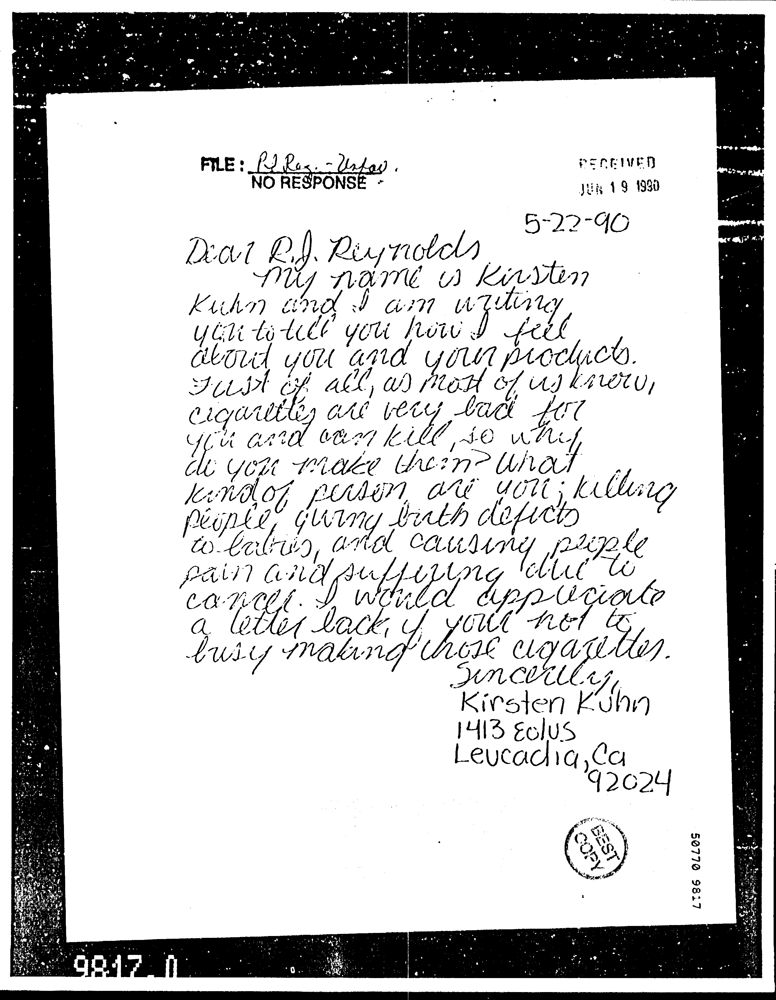 FILE: RJ Rey. - Unfav.
NO RESPONSE
RECEIVED
JUN 19 1990
5-22-90
Dear R.J. Reynolds
My name is Kirsten
Kuhn and I am writing
you to tell you how I feel
about you and your products.
First of all, as most of us know,
cigarettes are very bad for
you and can kill, so why
do you make them? What
kind of person are you; killing
people, giving birth defects
to babies, and causing people
pain and suffering due to
cancer. I would appreciate
a letter back, if your not to
busy making those cigarettes.
Sincerely,
Kirsten Kuhn
1413 Eolus
Leucadia, Ca
92024
BEST
COPY
50770 9817
9817.0